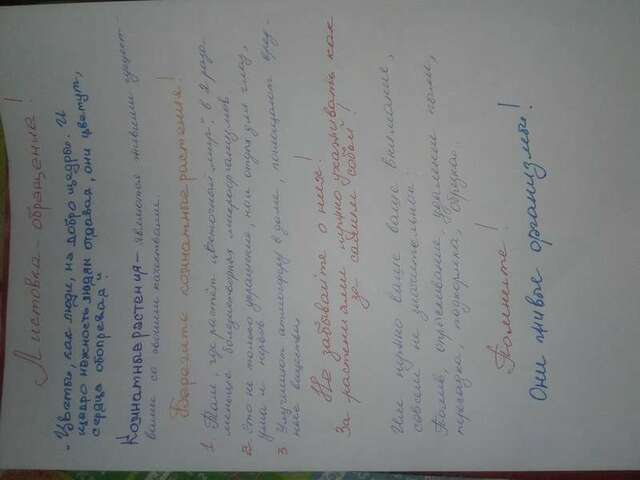 Листовка - обращение!
„Цветы, как люди, на добро щедры. И
щедро нежность людям отдавая, они цветут,
сердца обогревая".
Комнатные растения - являются живыми сущест-
вами со своими качествами.
Берегите комнатные растения!
1. Там, где растёт цветочный „мир", в 2 раза
меньше болезнетворных микроорганизмов
2. Это не только украшение, но и отдых для глаз,
ума и нервов.
3 Улучшают атмосферу в доме, поглощают вред-
ные вещества
Не забывайте о них!
За растениями нужно ухаживать как
за самим собой!
Им нужно ваше ваше внимание,
совсем не значительное:
Полив, опрыскивание, удаление пыли,
пересадка, подкормка, обрезка..
Помните!
Они живые организмы!